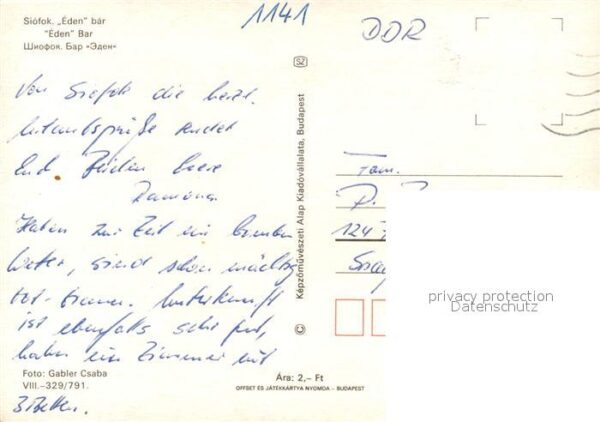 Siófok. „Éden” bár
"Éden" Bar
Шиофок. Бар «Эден»
1141
DDR
SZ
Von Siofok die herzl.
Urlaubsgrüße sendet
Euch
Ramona.
Haben zur Zeit ein
Wetter, sind schon mächtig
rot-braun. Unterkunft
ist ebenfalls sehr gut,
haben ein Zimmer mit
3 Betten.
Foto: Gabler Csaba
VIII.–329/791.
Képzőművészeti Alap Kiadóvállalata, Budapest
©
Ára: 2,– Ft
OFFSET ÉS JÁTÉKKÁRTYA NYOMDA – BUDAPEST
Fam.
privacy protection
Datenschutz